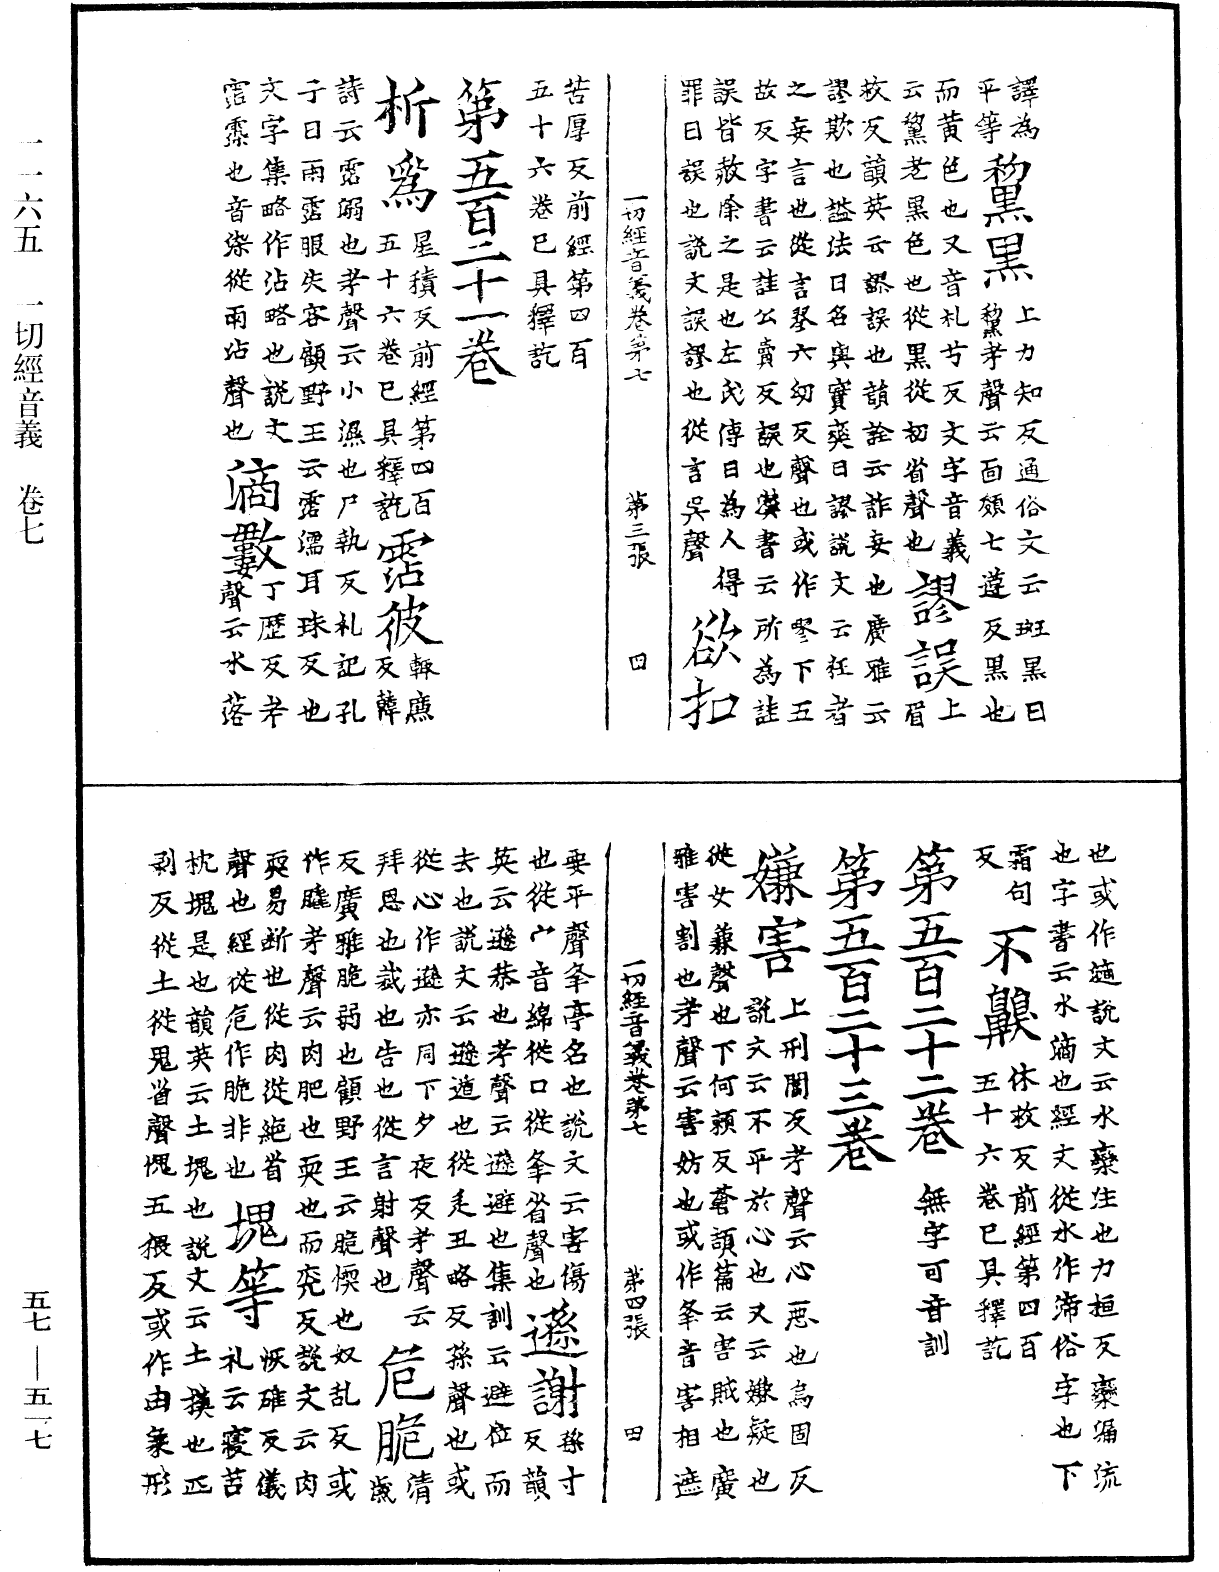 一一六五　一切經音義　卷七
譯為
平等
黧黑
上力知反通俗文云斑黑曰
黧考聲云面頦七遵反黑也
而黃色也又音札兮反文字音義
云黧老黑色也從黑從初省聲也
謬誤
上
眉
救反韻英云謬誤也韻詮云詐妄也廣雅云
謬欺也謚法曰名與實爽曰謬說文云狂者
之妄言也從言翏六幼反聲也或作翏下五
故反字書云詿公賣反誤也漢書云所為詿
誤皆赦除之是也左氏傳曰為人得
罪曰誤也說文誤謬也從言吳聲
欲扣
一切經音義卷第七　第三張　四
苦厚反前經第四百
五十六卷已具釋訖
第五百二十一卷
析為
星積反前經第四百
五十六卷已具釋訖
霑彼
輒廉
反韓
詩云霑溺也考聲云小濕也尸執反礼記孔
子曰雨霑服失容顧野王云霑濡耳珠反也
文字集略作沾略也說文
霑霂也音染從雨沾聲也
滴數
丁歷反考
聲云水落
也或作適說文云水欒注也力桓反欒漏流
也字書云水滴也經文從水作渧俗字也下
霜句
反
不齅
休救反前經第四百
五十六卷已具釋訖
第五百二十二卷　無字可音訓
第五百二十三卷
嫌害
上刑閻反考聲云心惡也烏固反
說文云不平於心也又云嫌疑也
從女兼聲也下何賴反蒼頡篇云害賊也廣
雅害割也考聲云害妨也或作夆音害相遮
一切經音義卷第七　第四張　四
要平聲夆亭名也說文云害傷
也從宀音綿從口從夆省聲也
遜謝
孫寸
反韻
英云遜恭也考聲云遜避也集訓云避位而
去也說文云遜遁也從辵丑略反孫聲也或
從心作愻亦同下夕夜反考聲云
拜恩也裁也告也從言射聲也
危脆
清
歲
反廣雅脆弱也顧野王云脆愞也奴乱反或
作膬考聲云肉肥也耎也而兗反說文云肉
耎易斷也從肉從絕省
聲也經從危作脆非也
塊等
恢碓反儀
礼云寢苫
枕塊是也韻英云土塊也說文云土墣也匹
剥反從土從鬼省聲愧五猥反或作由象形
五七—五一七